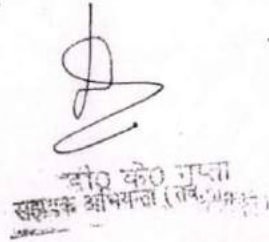 वी० के० गुप्ता
सहायक अभियन्ता